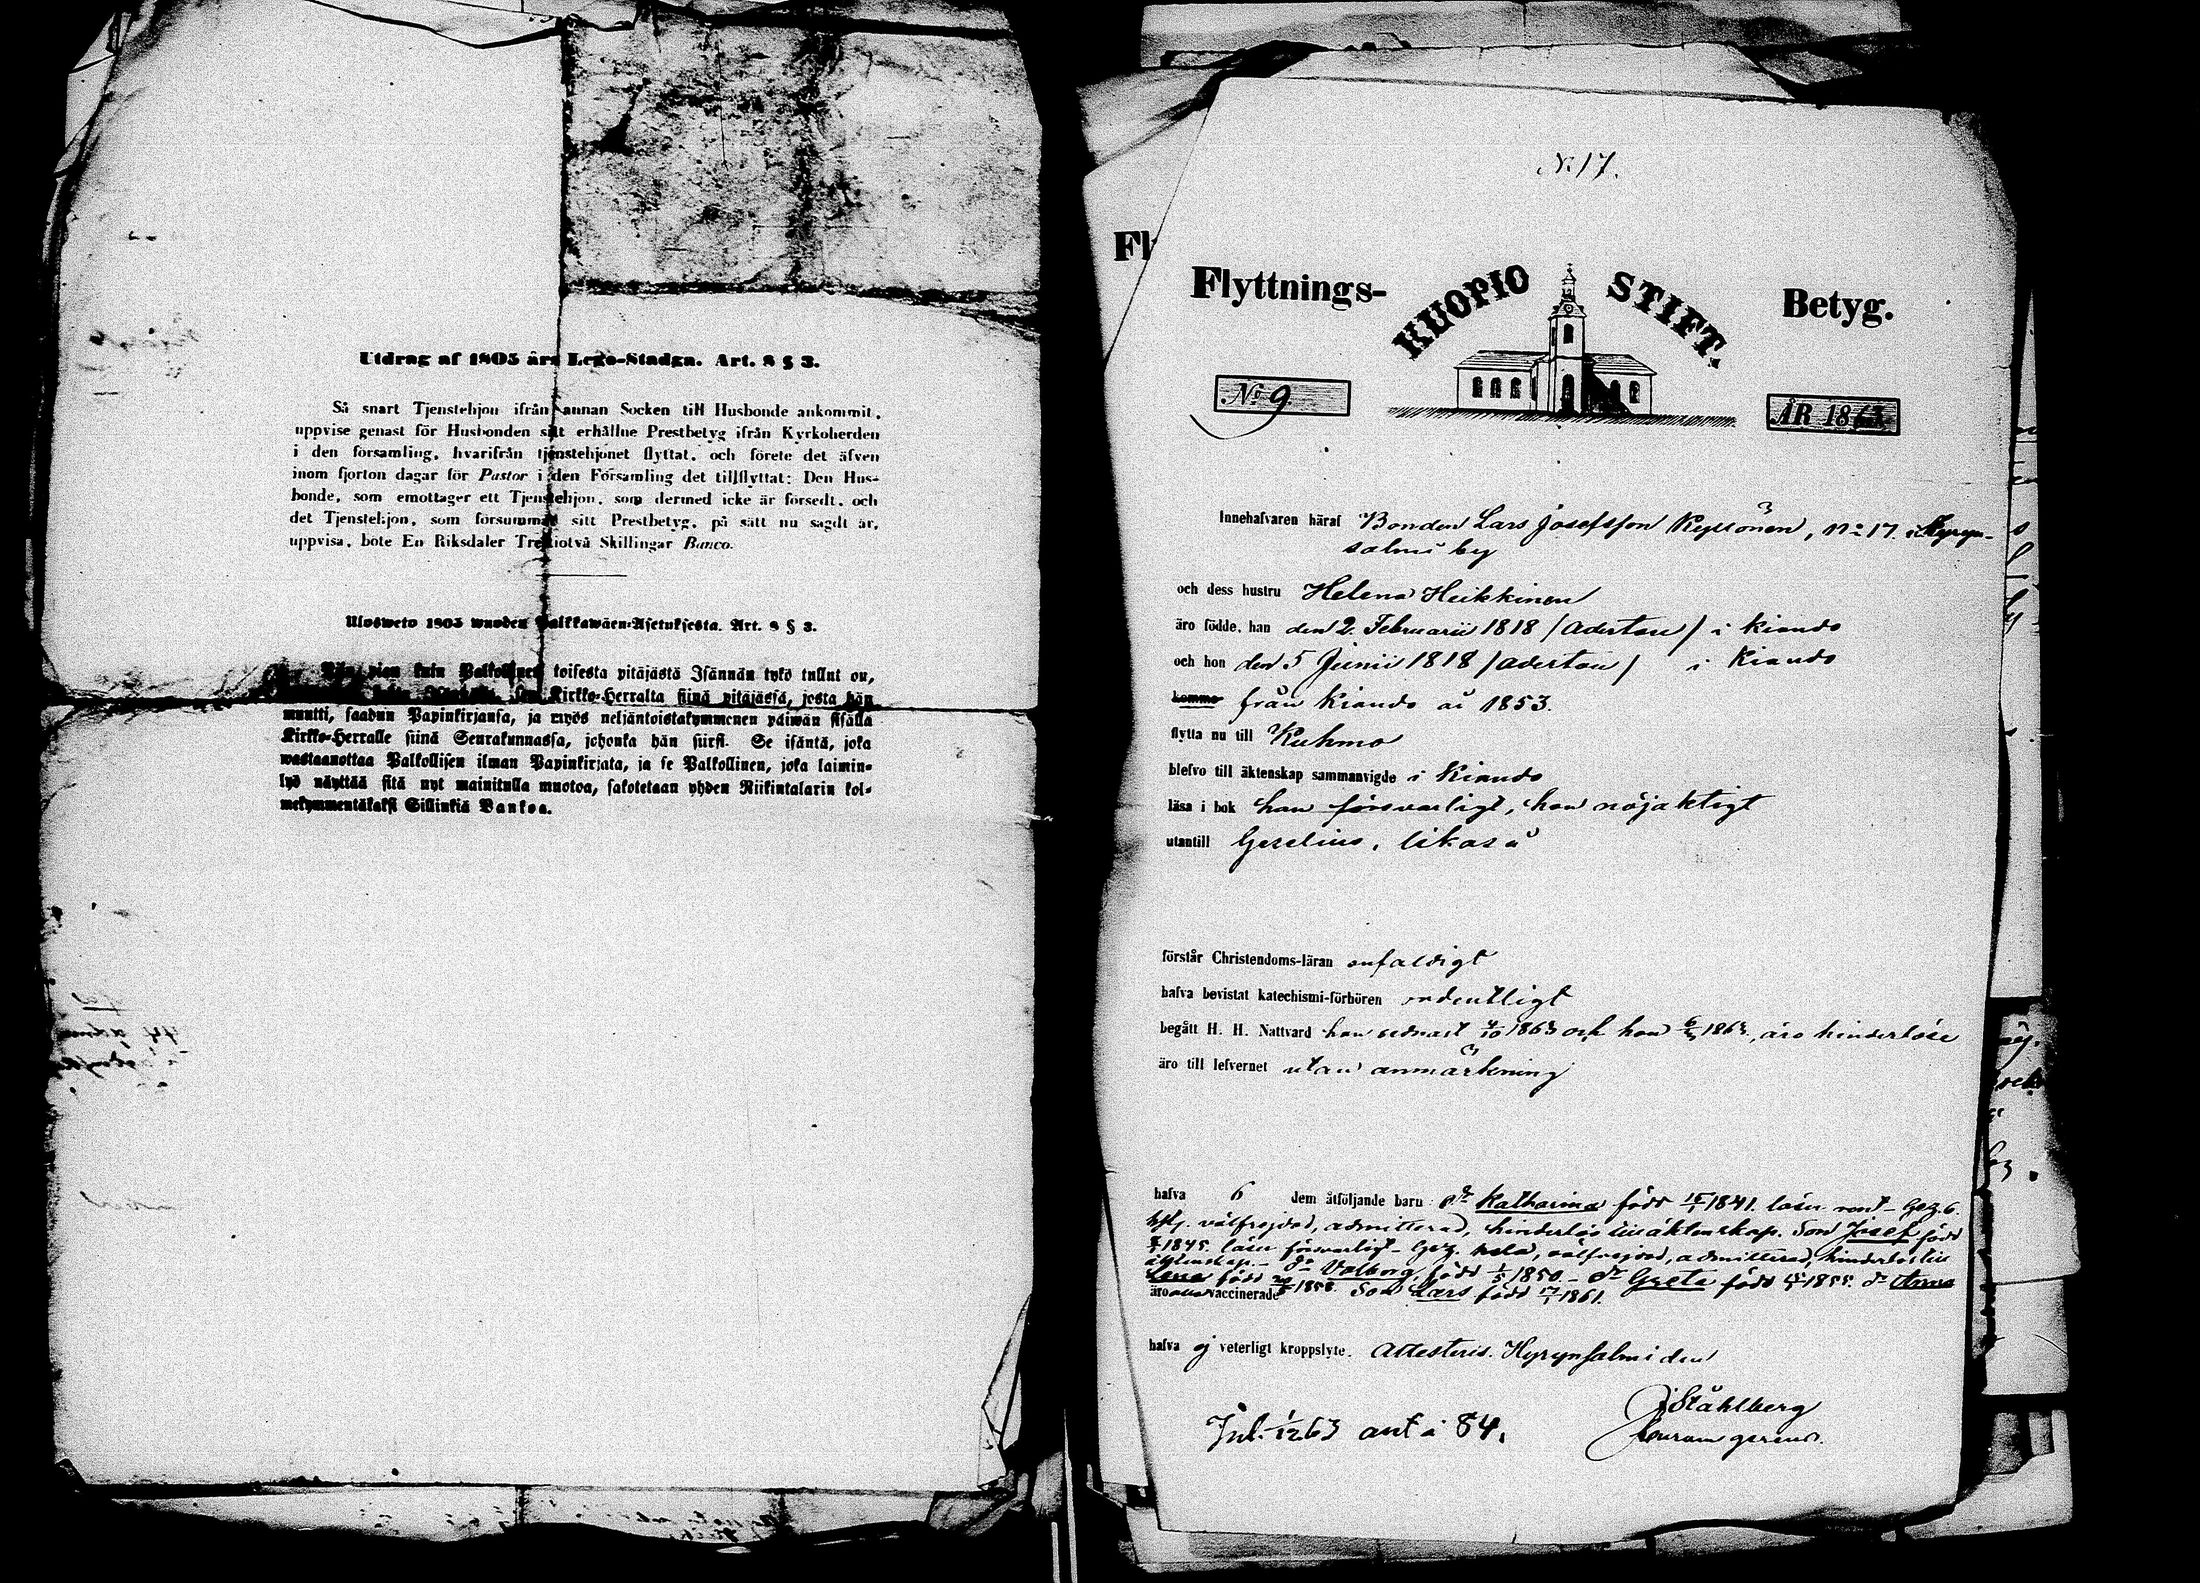 Utdrag af 1805 års Lego-Stadga. Art. 8 § 3.
Så snart Tjenstehjon ifrån annan Socken till Husbonde ankommit,
uppvise genast för Husbonden sitt erhållne Prestbetyg ifrån Kyrkoherden
i den församling, hvarifrån tjenstehjonet flyttat, och förete det äfven
inom fjorton dagar för Pastor i den Församling det tillflyttat: Den Hus-
bonde, som emottager ett Tjenstehjon, som dermed icke är försedt, och
det Tjenstehjon, som försummat sitt Prestbetyg, på sätt nu sagdt är,
uppvisa, böte En Riksdaler Trettiotvå Skillingar Banco.
Ulosweto 1805 wuoden Palkkawäen-Asetuksesta. Art. 8 § 3.
pian kuin Palkollinen toisesta pitäjästä Isännän tykö tullut on,
Kirkko-Herralta siinä pitäjässä, josta hän
muutti, saadun Papinkirjansa, ja myös neljäntoistakymmenen päiwän sisällä
Kirkko-Herralle siinä Seurakunnassa, johonka hän siirsi. Se isäntä, joka
wastaanottaa Palkollisen ilman Papinkirjata, ja se Palkollinen, joka laimin-
lyö näyttää sitä nyt mainitulla muotoa, sakotetaan yhden Riikintalarin kol-
mekymmentäkaksi Sillinkiä Bankoa.
N:17.
Fl
Flyttnings- KUOPIO STIFT. Betyg.
No 9 ÅR 1863.
Innehafvaren häraf Bonden Lars Josefsson Kyllönen, No 17. i Hyryn-
salmi by
och dess hustru Helena Heikkinen
äro födde, han den 2. Februarii 1818 /aderton/ i Kiando
och hon den 5 Junii 1818 /aderton/ i Kiando
komma från Kiando år 1853.
flytta nu till Kuhmo
blefvo till äktenskap sammanvigde i Kiando
läsa i bok han försvarligt, hon nöjaktigt
utantill Gezelius, likaså
förstår Christendoms-läran enfaldigt
hafva bevistat katechismi-förhören ordentligt
begått H. H. Nattvard han sednast 4/10 1863 och hon 1863, äro hinderlöse
äro till lefvernet utan anmärkning
hafva 6 dem åtföljande barn dr Katharina född 1841. läser rent - Gez. 6.
välfrejdad, admitterad, hinderlös till äktenskap. Son Josef född
1845. läser försvarligt - Gez. hela, välfrejdad, admitterad, hinderlös till
äktenskap. - dr Valborg född 1/5 1850 - dr Greta född 1855. dr Anna
Lena född 20 1858. Son Lars född 17/1 1861.
äro alla vaccinerade
hafva ej veterligt kroppslyte. Attesteris. Hyrynsalmi den
J Ståhlberg
Curam gerens.
Inl. 1/12 63 ant å 84.